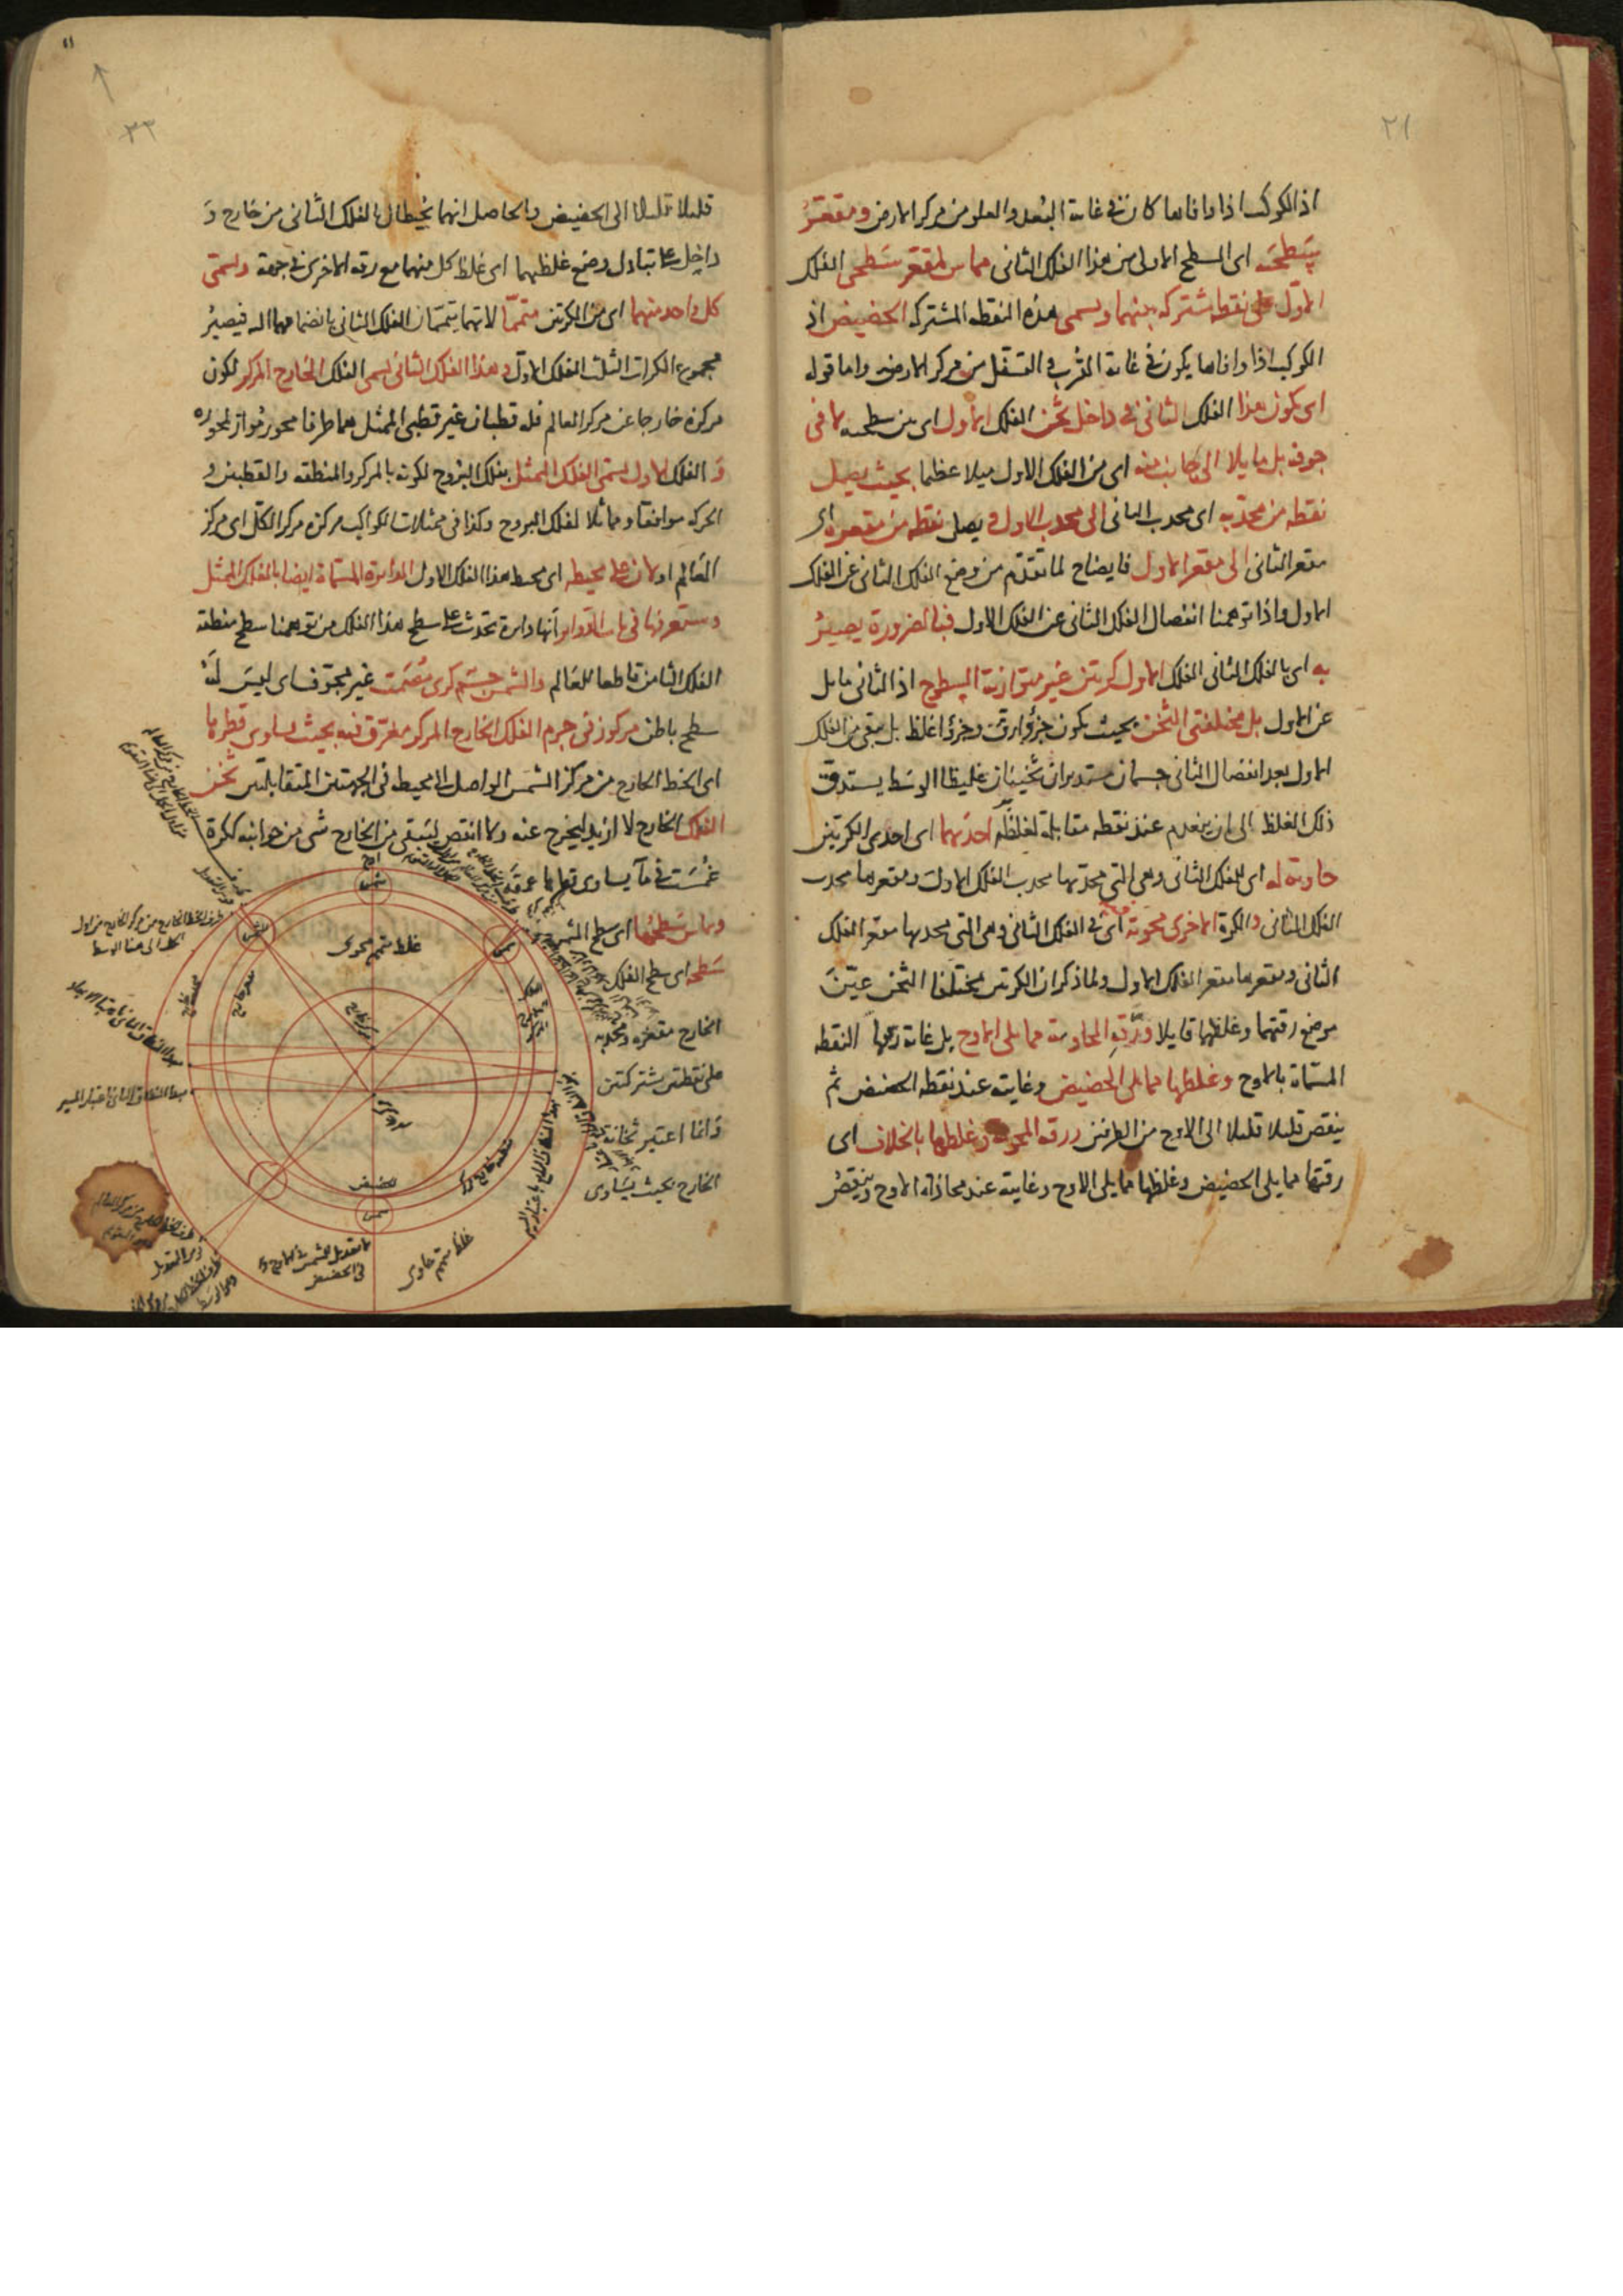 ٢١
اذ الكوكب اذا وافاها كان فى غاية البعد والعلو من مركز الارض ومقعر
سطحيه اى السطح الاول من هذا الفلك الثانى مماس لمقعر سطحى الفلك
الاول على نقطة مشتركة بينهما ويسمى هذه النقطة المشتركة الحضيض اذ
الكوكب اذا وافاها يكون فى غاية القرب و التسفل من مركز الارض واما قوله
اى كون هذا الفلك الثانى فى داخل ثخن الفلك الاول اى بين سطحيه لا فى
جوفه بل مايلا الى جانب منه اى من الفلك الاول ميلا عظيما بحيث يصل
نقطة من محدبه اى محدب الثانى الى محدب الاول و يصل نقطة من مقعره اى
مقعر الثانى الى مقعر الاول فايضاح لما تقدم من وضع الفلك الثانى عن الفلك
الاول واذا توهمنا انفصال الفلك الثانى عن الفلك الاول فبالضرورة يصير
به اى بالفلك الثانى الفلك الاول كرتين غير متوازية السطوح اذ الثانى مايل
عن الاول بل مختلفتى الثخن بحيث يكون جزؤ ارق وجزؤ اغلظ بل يبقى من الفلك
الاول بعد انفصال الثانى جسمان مستديران ثخينان غليظا الوسط يستدق
ذلك الغلظ الى ان ينعدم عند نقطة مقابلة لغلظه احديهما اى احدى الكرتين
حاوية له اى للفلك الثانى وهى التى محدبها محدب الفلك الاول ومقعرها محدب
الفلك الثانى والكرة الاخرى محوية اى فى الفلك الثانى وهى التى محدبها مقعر الفلك
الثانى ومقعرها مقعر الفلك الاول ولما ذكر ان الكرتين مختلفا الثخن عين
موضع رقتهما وغلظهما قايلا ورقة الحاوية مما يلى الاوج بل غاية رقتها النقطة
المسماة بالاوج وغلظها مما يلى الحضيض وغايته عند نقطة الحضيض ثم
ينقص قليلا قليلا الى الاوج من الطرفين ورقة المحوية وغلظها بالخلاف اى
رقتها مما يلى الحضيض وغلظها مما يلى الاوج وغايته عند محاذاة الاوج وينقص
١١
٢٢
قليلا قليلا الى الحضيض والحاصل انهما يحيطان بالفلك الثانى من خارج و
داخل على تبادل وضع غلظيهما اى غلظ كل منهما مع رقة الاخرى فى جهة ويسمى
كل واحد منهما اى من الكرتين متمما لانهما يتممان الفلك الثانى بانضمامهما اليه فيصير
مجموع الكرات الثلث الفلك الاول وهذا الفلك الثانى يسمى الفلك الخارج المركز لكون
مركزه خارجا عن مركز العالم فله قطبان غير قطبى الممثل هما طرفا محور مواز لمحوره
و الفلك الاول يسمى الفلك الممثل بفلك البروج لكونه بالمركز والمنطقة والقطبين و
الحركة موافقا ومماثلا لفلك البروج وكذا فى ممثلات الكواكب مركزه مركز الكل اى مركز
العالم او لان على محيطه اى محيط هذا الفلك الاول الدائرة المسماة ايضا بالفلك الممثل
وستعرفها فى باب الدوائر انها دايرة تحدث على سطح هذا الفلك من توهمنا سطح منطقة
الفلك الثامن قاطعا للعالم والشمس جسم كرى مصمت غير مجوف اى ليس له
سطح باطن مركوز فى جرم الفلك الخارج المركز مغرق فيه بحيث يساوى قطرها
اى الخط الخارج من مركز الشمس الواصل الى المحيط فى الجهتين المتقابلتين ثخن
الفلك الخارج لا ازيد ليخرج عنه ولا انقص ليبقى من الخارج شى من جوانبه ككرة
غمست فى ماء يساوى قطرها عمقه
ويماس سطحها اى سطح الشمس
سطحه اى سطح الفلك
الخارج مقعره ومحدبه
على نقطتين مشتركتين
وانما اعتبر ثخانة
الخارج بحيث يساوى
اوج
شمس
الشمس
شمس
غلظ متمم محوى
مركز خارج
مقعر خارج
الحضيض
شمس
طرف الخط الخارج من مركز الخارج من اول
الحمل الى هنا الوسط
مبدا النطاق الثانى باعتبار المسير
لا تعديل للشمس فى الاوج و
فى الحضيض
غلظ متمم حاوى